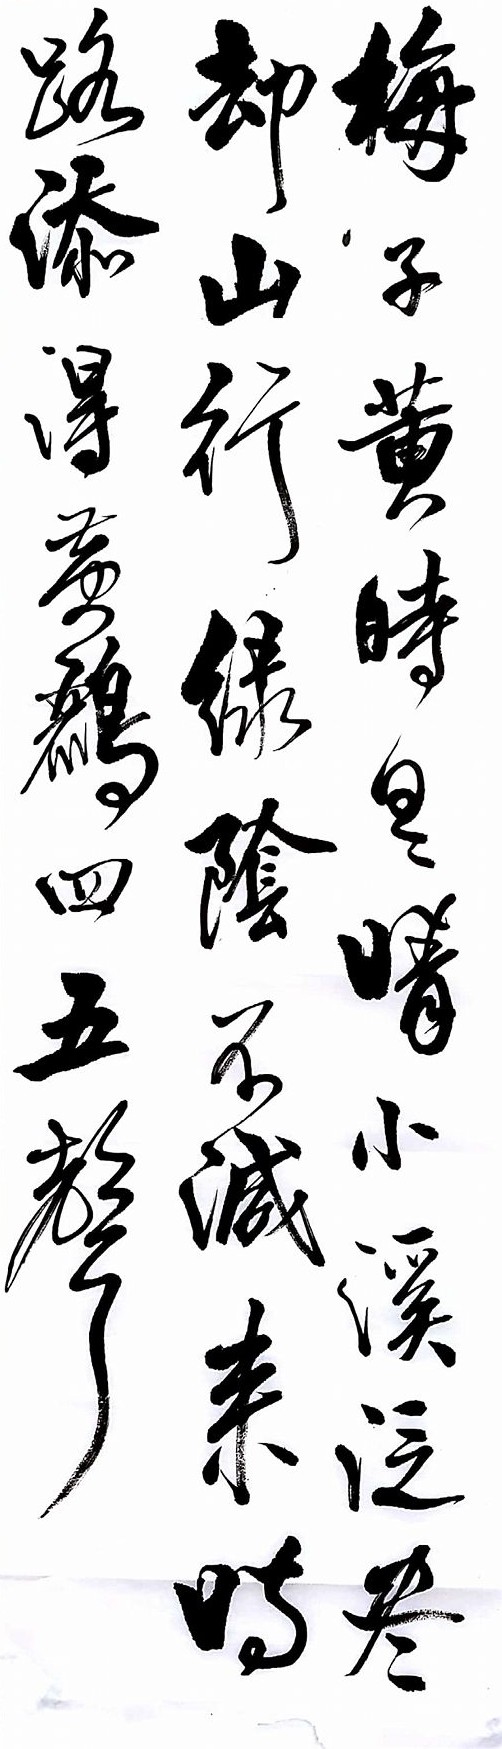 梅子黄時日日晴小溪泛尽
却山行緑陰不減来時
路添得黄鸝四五聲